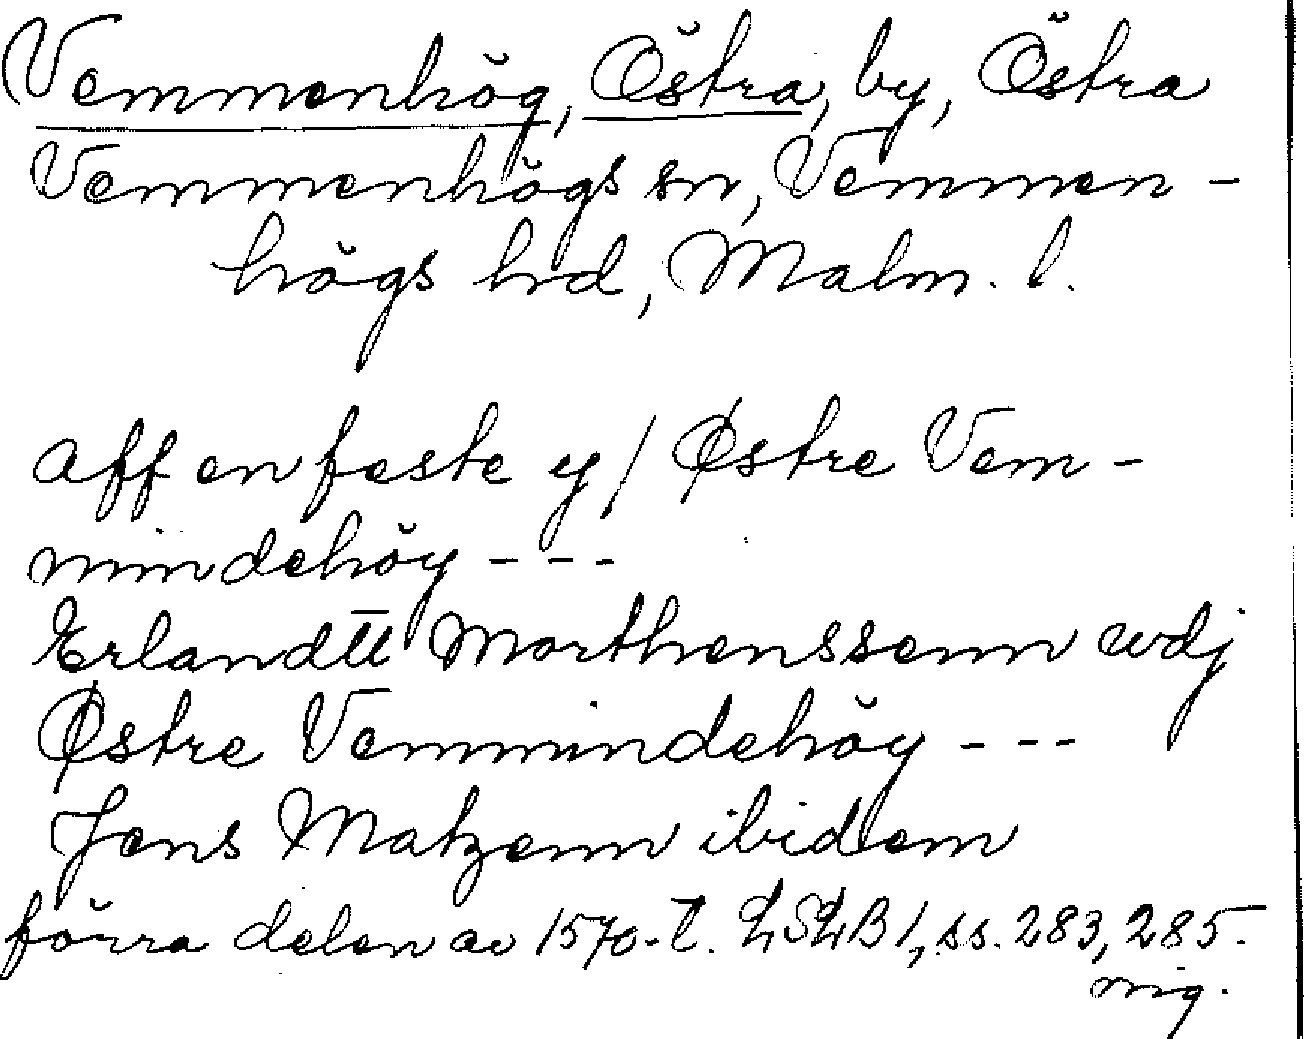 Vemmenhög, Östra, by, Östra
Vemmenhögs sn, Vemmen-
högs hd, Malm. l.
aff en feste y / Østre Vem-
mindehöy ---
Erlandtt Morthenssenn wdj
Østre Vemmindehöy ---
Jens Matzenn ibidem
förra delen av 1570-t. LSLB 1, ss. 283, 285.
mig.